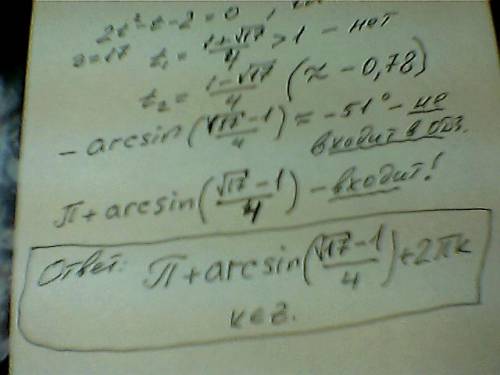 2t² - t - 2 = 0
D = 17 t₁ = (1+√17)/4 > 1 - нет
t₂ = (1-√17)/4 (≈ -0,78)
- arcsin((√17-1)/4) ≈ -51° - не
входит в ОДЗ.
π + arcsin((√17-1)/4) - входит!
Ответ: π + arcsin((√17-1)/4) + 2πk
k ∈ Z.